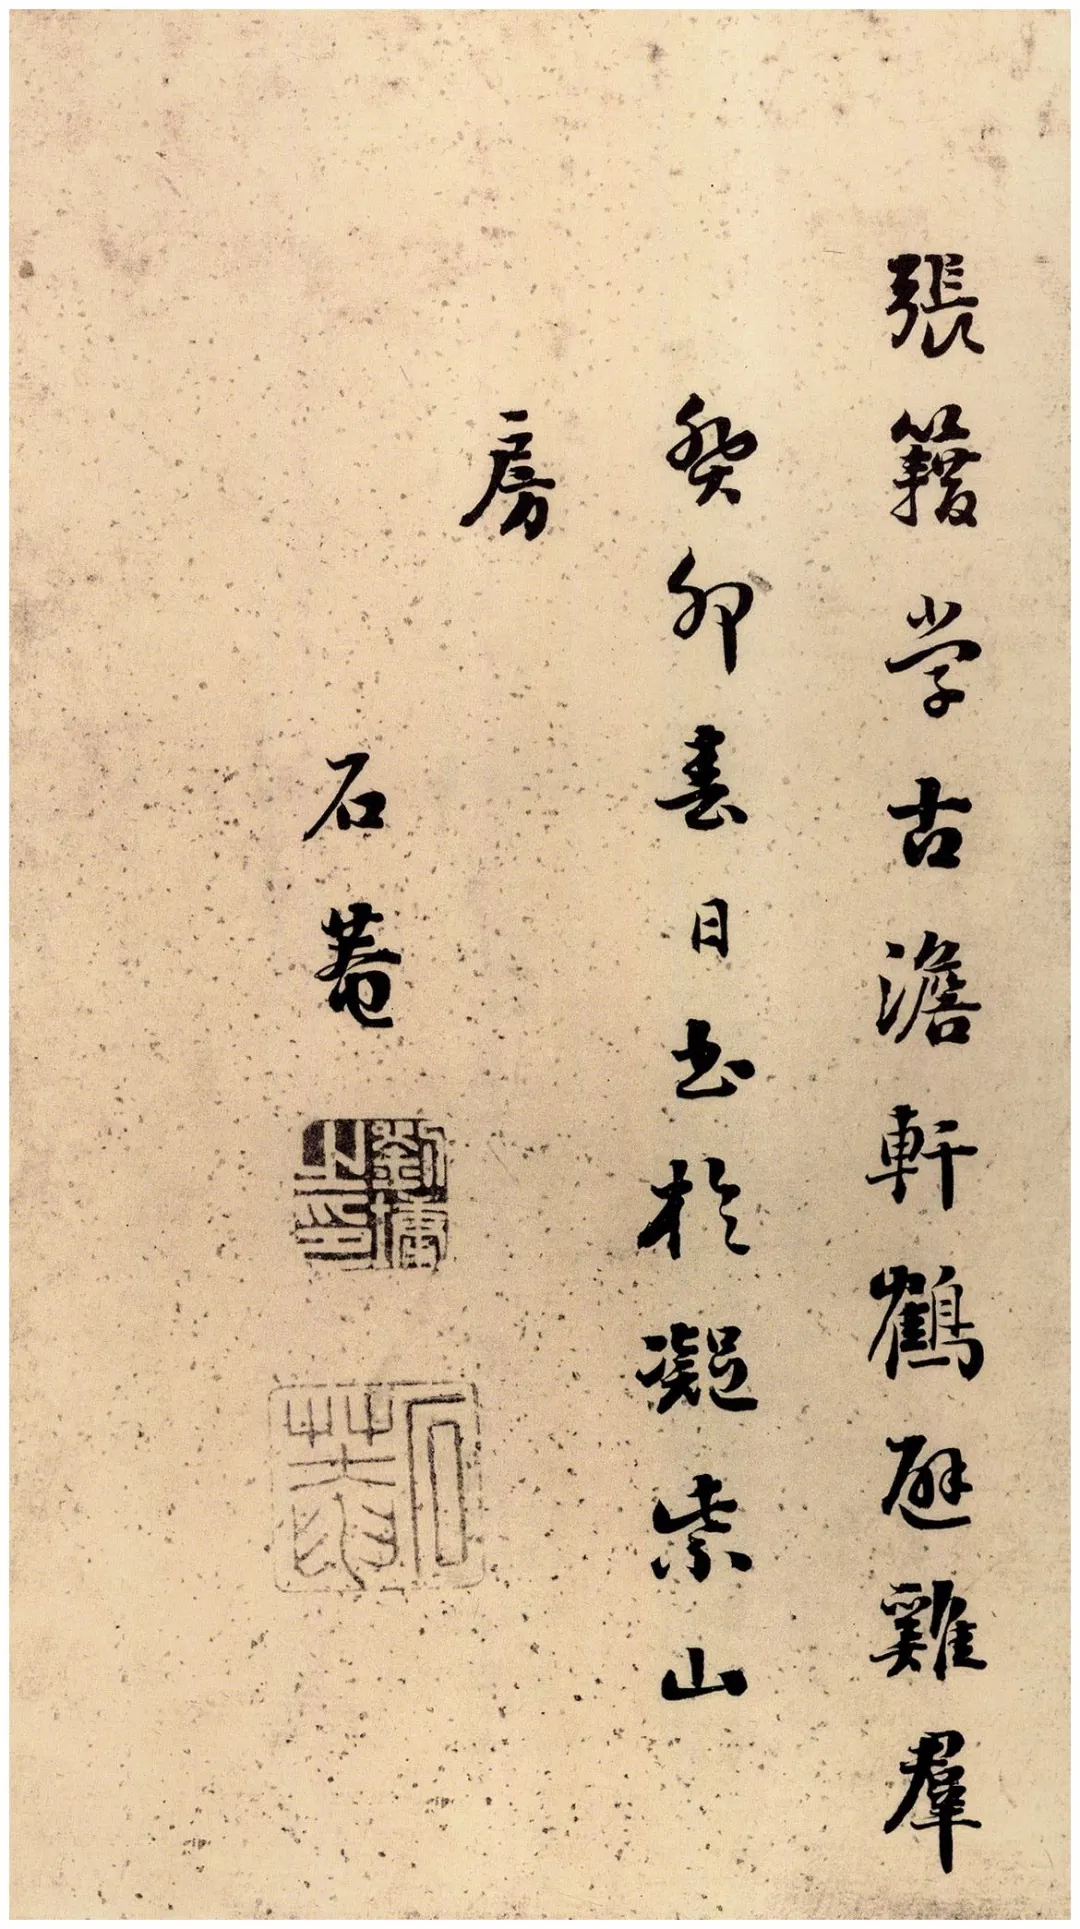 張籍学古澹軒鶴避雞羣
癸卯春日书於凝紫山
房
石菴
劉墉之印
石菴